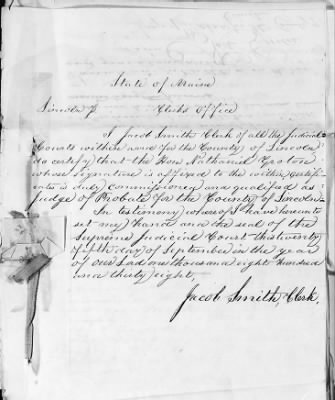 State of Maine
Lincoln Ss. Clerks Office
I Jacob Smith Clerk of all the Judicial
Courts within and for the County of Lincoln
do certify that the Hon Nathaniel Groton
whose signature is affixed to the within certifi-
cate is duly commissioned and qualified as
Judge of Probate for the County of Lincoln.
In testimony whereof I have hereunto
set my hand and the seal of the
Supreme Judicial Court this twenty
fifth day of September in the year
of our Lord one thousand eight hundred
and thirty eight,
Jacob Smith, Clerk.